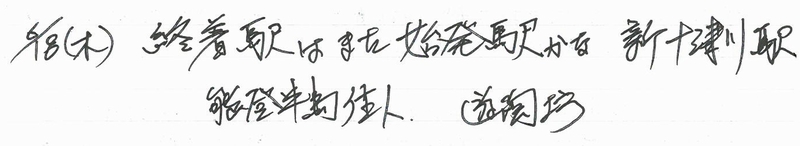 9/8(木) 終着駅はまた始発駅かな 新十津川駅
能登半島佳人. 遊陶坊